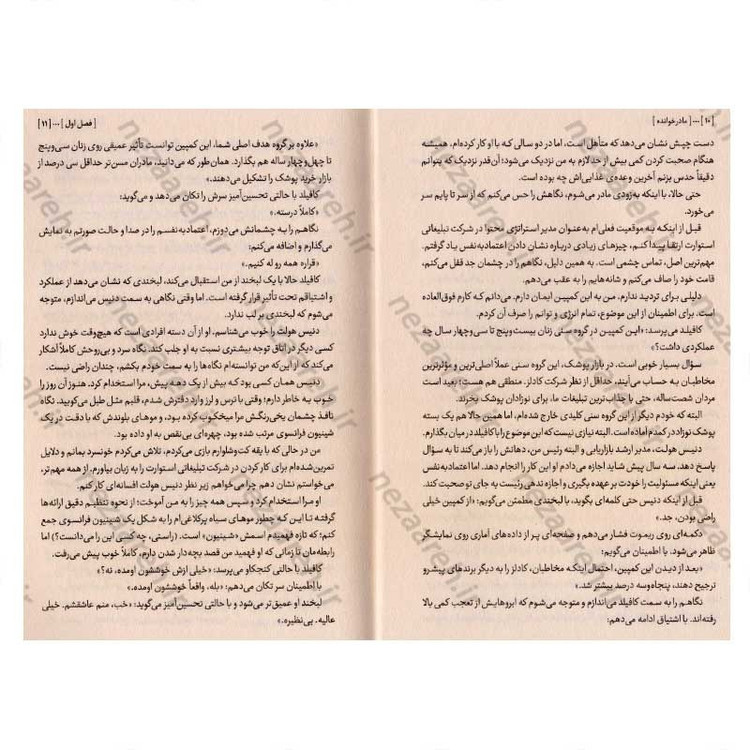 [۱۰] ... [ مادرخوانده ]
دست چپش نشان می‌دهد که متأهل است، اما در دو سالی که با او کار کرده‌ام، همیشه
هنگام صحبت کردن کمی بیش از حد لازم به من نزدیک می‌شود؛ آن‌قدر نزدیک که بتوانم
دقیقاً حدس بزنم آخرین وعده‌ی غذایی‌اش چه بوده است.
حتی حالا، با اینکه به‌زودی مادر می‌شوم، نگاهش را حس می‌کنم که از سر تا پایم سر
می‌خورد.
قبل از اینکه به موقعیت فعلی‌ام به‌عنوان مدیر استراتژی محتوا در شرکت تبلیغاتی
استوارت ارتقا پیدا کنم، چیزهای زیادی درباره نشان دادن اعتمادبه‌نفس یاد گرفتم.
مهم‌ترین اصل، تماس چشمی است. به همین دلیل، نگاهم را در چشمان جد قفل می‌کنم،
قامت خود را صاف می‌کنم و شانه‌هایم را به عقب می‌دهم.
دلیلی برای تردید ندارم. من به این کمپین ایمان دارم. می‌دانم که کارم فوق‌العاده
است. برای اطمینان از این موضوع، تمام انرژی و توانم را صرف آن کردم.
کافیلد می‌پرسد: «این کمپین در گروه سنی زنان بیست‌وپنج تا سی‌وچهار سال چه
عملکردی داشت؟»
سؤال بسیار خوبی است. در بازار پوشک، این گروه سنی عملاً اصلی‌ترین و مؤثرترین
مخاطبان به حساب می‌آیند، حداقل از نظر شرکت کادلز. منطقی هم هست؛ بعید است
مردان شصت‌ساله، حتی با جذاب‌ترین تبلیغات ما، برای نوزادان پوشک بخرند.
البته که خودم دیگر از این گروه سنی کلیدی خارج شده‌ام، اما همین حالا هم یک بسته
پوشک نوزاد در کمدم آماده است. البته نیازی نیست که این موضوع را با کافیلد در میان بگذارم.
دنیس هولت، مدیر ارشد بازاریابی و البته رئیس من، دهانش را باز می‌کند تا به سؤال
پاسخ دهد. سه سال پیش شاید اجازه می‌دادم او این کار را انجام دهد. اما اعتمادبه‌نفس
یعنی اینکه مسئولیت را خودت بر عهده بگیری و اجازه ندهی رئیست به جای تو صحبت کند.
قبل از اینکه دنیس حتی کلمه‌ای بگوید، با لبخندی مطمئن می‌گویم: «از کمپین خیلی
راضی بودن، جد.»
دکمه‌ای روی ریموت فشار می‌دهم و صفحه‌ای پر از داده‌های آماری روی نمایشگر
ظاهر می‌شود. با اطمینان می‌گویم:
«بعد از دیدن این کمپین، احتمال اینکه مخاطبان، کادلز را به دیگر برندهای پیشرو
ترجیح دهند، پنجاه‌وسه درصد بیشتر شد.»
نگاهم را به سمت کافیلد می‌اندازم و متوجه می‌شوم که ابروهایش از تعجب کمی بالا
رفته‌اند. با اشتیاق ادامه می‌دهم:
[ فصل اول ] ... [۱۱]
«علاوه بر گروه هدف اصلی شما، این کمپین توانست تأثیر عمیقی روی زنان سی‌وپنج
تا چهل‌وچهار ساله هم بگذارد. همان‌طور که می‌دانید، مادران مسن‌تر حداقل سی درصد از
بازار خرید پوشک را تشکیل می‌دهند.»
کافیلد با حالتی تحسین‌آمیز سرش را تکان می‌دهد و می‌گوید:
«کاملاً درسته.»
نگاهم را به چشمانش می‌دوزم، اعتمادبه‌نفسم را در صدا و حالت صورتم به نمایش
می‌گذارم و اضافه می‌کنم:
«قراره همه رو له کنیم.»
کافیلد حالا با یک لبخند از من استقبال می‌کند، لبخندی که نشان می‌دهد از عملکرد
و اشتیاقم تحت تأثیر قرار گرفته است. اما وقتی نگاهی به سمت دنیس می‌اندازم، متوجه
می‌شوم که لبخندی بر لب ندارد.
دنیس هولت را خوب می‌شناسم. او از آن دسته افرادی است که هیچ‌وقت خوش ندارد
کسی دیگر در اتاق توجه بیشتری نسبت به او جلب کند. نگاه سرد و بی‌روحش کاملاً آشکار
می‌کند که از این‌که من توانسته‌ام نگاه‌ها را به سمت خودم بکشم، چندان راضی نیست.
دنیس همان کسی بود که بیش از یک دهه پیش، مرا استخدام کرد. هنوز آن روز را
خوب به خاطر دارم؛ وقتی با ترس و لرز وارد دفترش شدم، قلبم مثل طبل می‌کوبید. نگاه
نافذ چشمان یخی‌رنگش مرا میخکوب کرده بود، و موهای بلوندش که با دقت در یک
شینیون فرانسوی مرتب شده بود، چهره‌ای بی‌نقص به او داده بود.
من در حالی که با یقه کت‌وشلوارم بازی می‌کردم، تلاش می‌کردم خونسرد بمانم و دلایل
تمرین‌شده‌ام برای کار کردن در شرکت تبلیغاتی استوارت را به زبان بیاورم. از همه مهم‌تر،
می‌خواستم نشان دهم چرا می‌خواهم زیر نظر دنیس هولت افسانه‌ای کار کنم.
او مرا استخدام کرد و سپس همه چیز را به من آموخت؛ از نحوه تنظیم دقیق ارائه‌ها
گرفته تا این‌که چطور موهای سیاه پرکلاغی‌ام را به شکل یک شینیون فرانسوی جمع
کنم؛ که تازه فهمیدم اسمش «شینیون» است. (راستی، چه کسی این را می‌دانست؟) اما
رابطه‌مان تا زمانی که او فهمید من قصد بچه‌دار شدن دارم، کاملاً خوب پیش می‌رفت.
کافیلد با حالتی کنجکاو می‌پرسد: «خیلی ازش خوششون اومده، نه؟»
با اطمینان سر تکان می‌دهم: «بله، واقعاً خوششون اومده.»
لبخند او عمیق‌تر می‌شود و با حالتی تحسین‌آمیز می‌گوید: «خب، منم عاشقشم. خیلی
عالیه. بی‌نظیره.»
nezaareh.ir